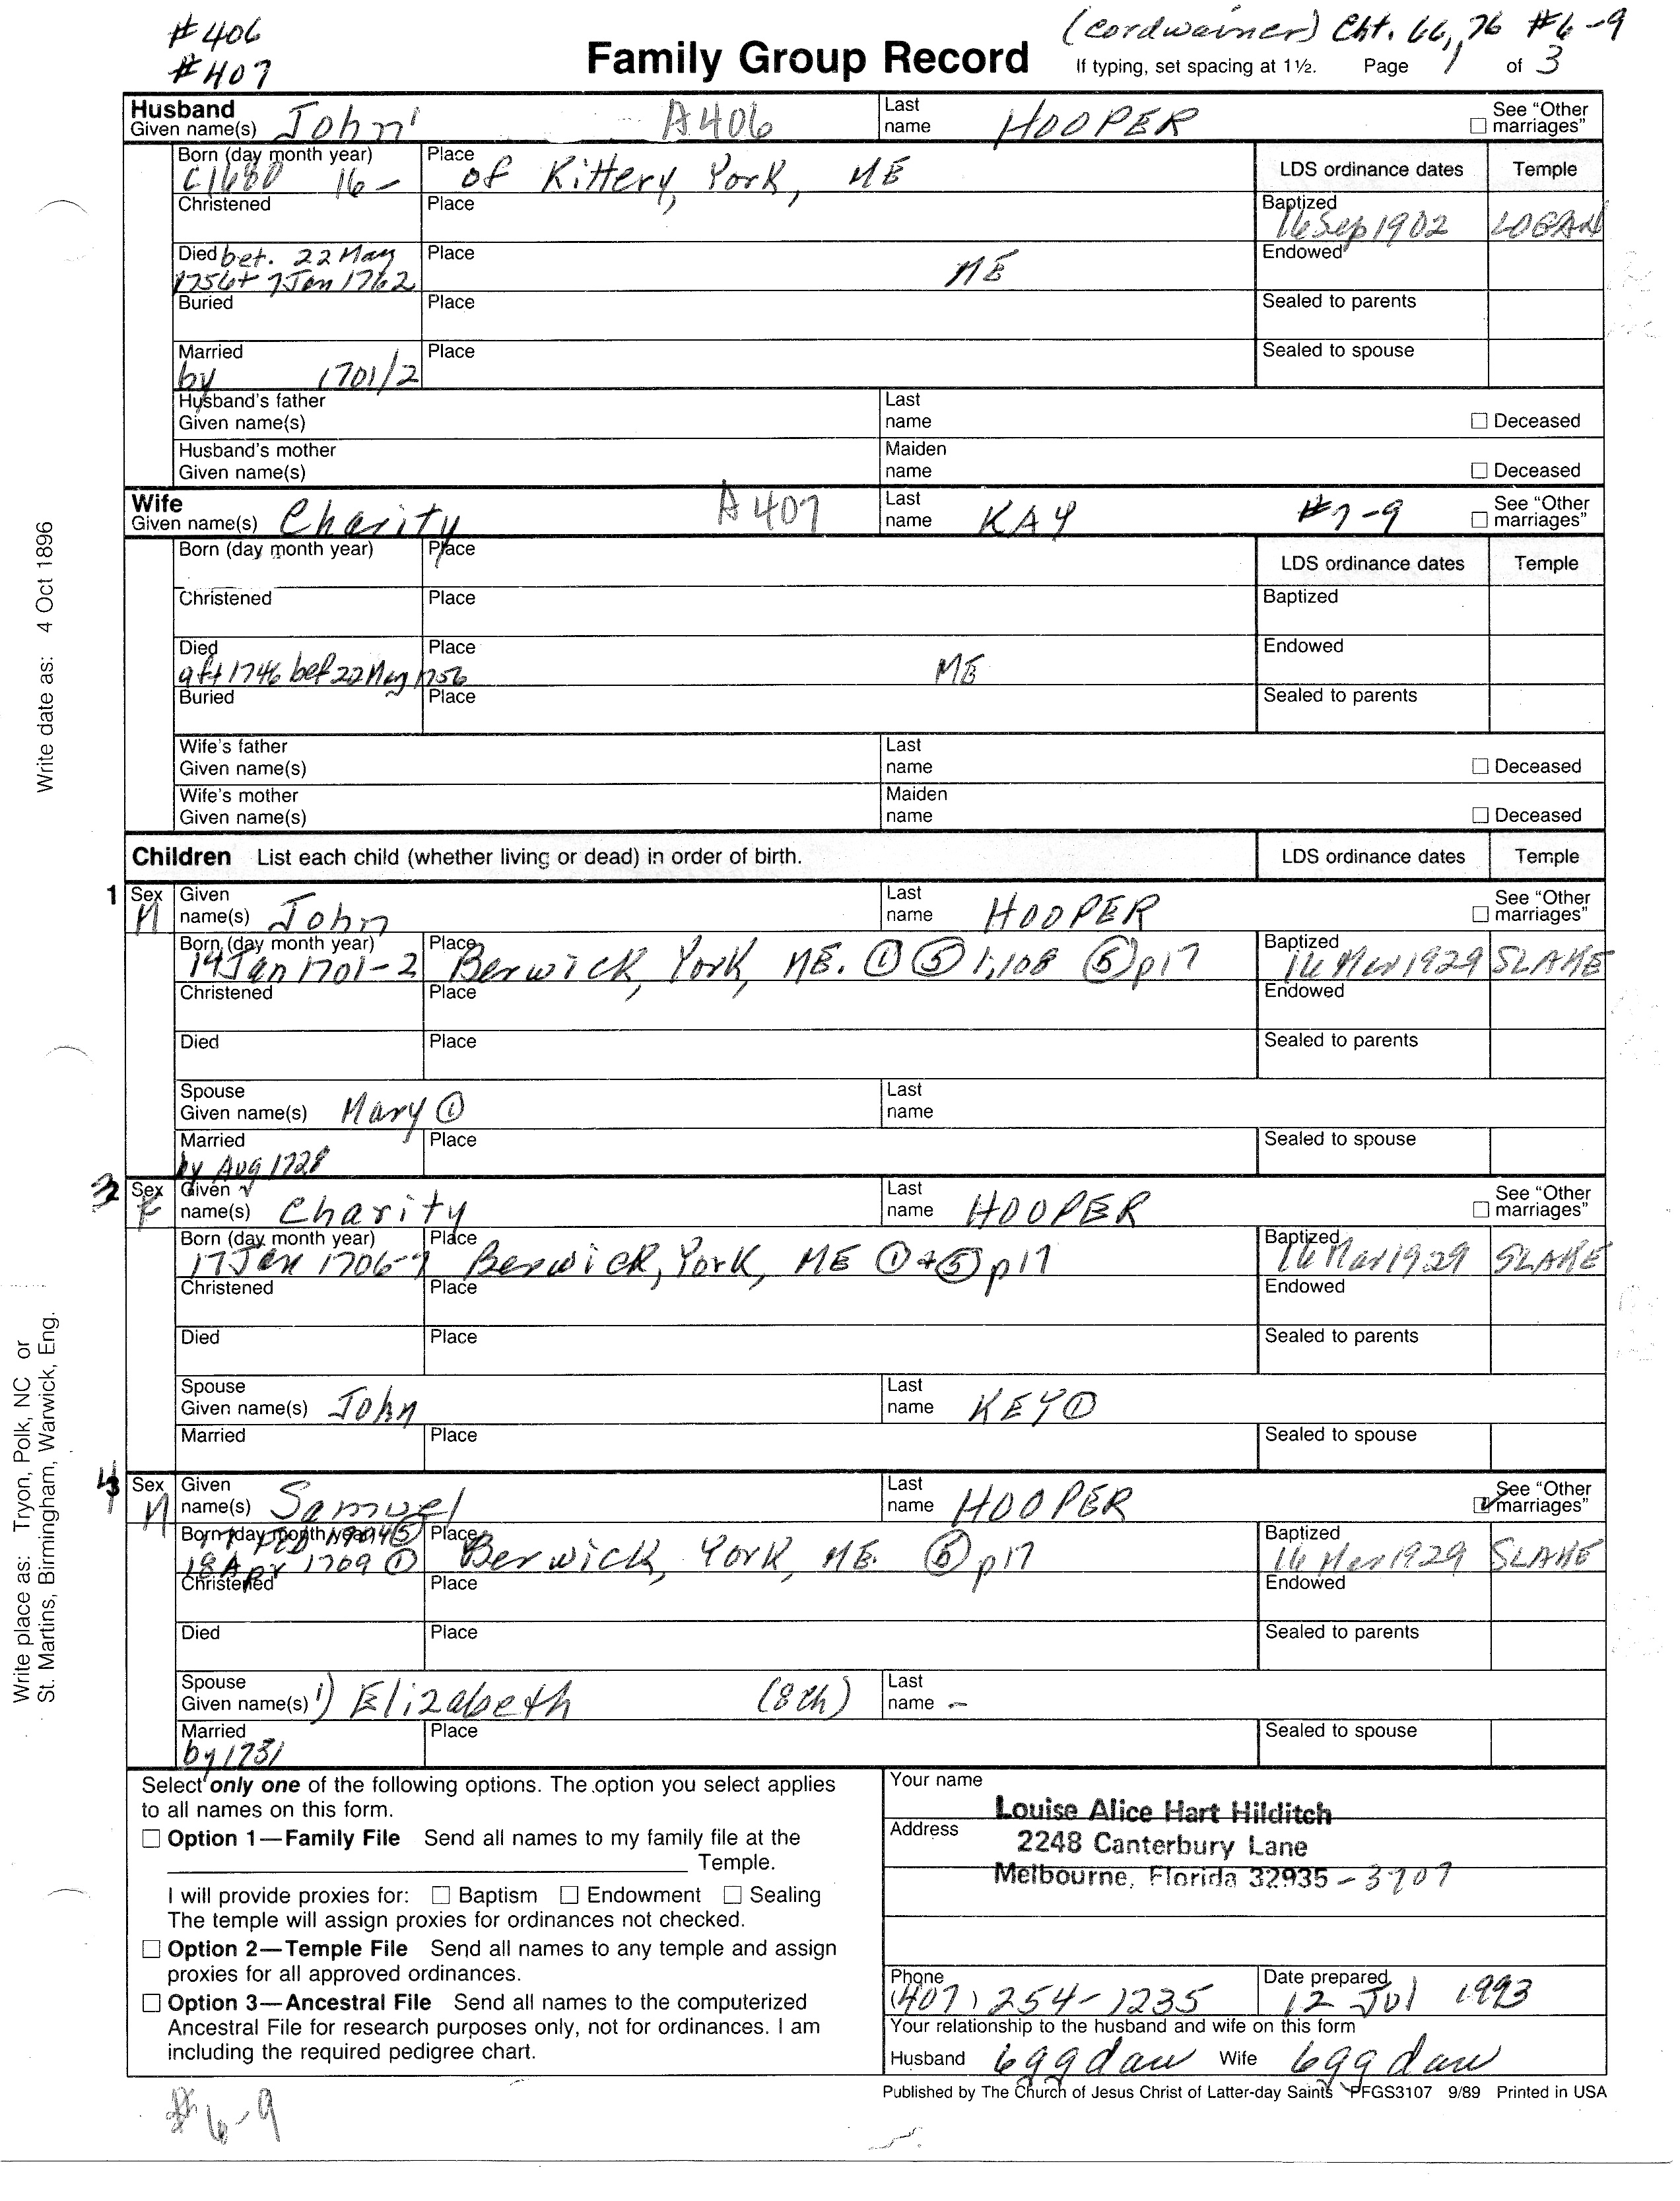 #406
#407
(cordwainer) Cht. 66, 76 #6-9
Family Group Record
If typing, set spacing at 1½. Page 1 of 3
Husband
Given name(s) John A406 Last name HOOPER See "Other marriages"
Born (day month year) Place
C1680 16- of Kittery, York, ME LDS ordinance dates Temple
Christened Place Baptized
16 Sep 1902 LOGAN
Died bet. 22 May Place Endowed
1756 + 7 Jan 1762 ME
Buried Place Sealed to parents
Married Place Sealed to spouse
by 1701/2
Husband's father Last
Given name(s) name Deceased
Husband's mother Maiden
Given name(s) name Deceased
Wife
Given name(s) Charity A407 Last name KAY #7-9 See "Other marriages"
Born (day month year) Place LDS ordinance dates Temple
Christened Place Baptized
Died Place Endowed
aft 1746 bef 22 May 1756 ME
Buried Place Sealed to parents
Wife's father Last
Given name(s) name Deceased
Wife's mother Maiden
Given name(s) name Deceased
Children List each child (whether living or dead) in order of birth. LDS ordinance dates Temple
1 Sex Given Last See "Other
M name(s) John name HOOPER marriages"
Born (day month year) Place Baptized
14 Jan 1701-2 Berwick, York, ME. ① ⑤ 1,108 ⑤ p17 16 Mar 1929 SLAKE
Christened Place Endowed
Died Place Sealed to parents
Spouse Last
Given name(s) Mary ① name
Married Place Sealed to spouse
by Aug 1728
2 3 Sex Given Last See "Other
F name(s) Charity name HOOPER marriages"
Born (day month year) Place Baptized
17 Jan 1706-7 Berwick, York, ME ① + ⑤ p17 16 Mar 1929 SLAKE
Christened Place Endowed
Died Place Sealed to parents
Spouse Last
Given name(s) John name KEY ①
Married Place Sealed to spouse
3 4 Sex Given Last See "Other
M name(s) Samuel name HOOPER marriages"
Born (day month year) Feb ⑤ Place Baptized
18 Apr 1709 ① Berwick, York, ME. ⑤ p17 16 Mar 1929 SLAKE
Christened Place Endowed
Died Place Sealed to parents
Spouse Last
Given name(s) 1) Elizabeth (8ch) name -
Married Place Sealed to spouse
by 1731
Select only one of the following options. The option you select applies
to all names on this form.
Option 1—Family File Send all names to my family file at the
Temple.
I will provide proxies for: Baptism Endowment Sealing
The temple will assign proxies for ordinances not checked.
Option 2—Temple File Send all names to any temple and assign
proxies for all approved ordinances.
Option 3—Ancestral File Send all names to the computerized
Ancestral File for research purposes only, not for ordinances. I am
including the required pedigree chart.
Your name
Louise Alice Hart Hilditch
Address
2248 Canterbury Lane
Melbourne, Florida 32935 - 3707
Phone Date prepared
(407) 254-1235 12 Jul 1993
Your relationship to the husband and wife on this form
Husband 6ggdau Wife 6ggdau
Published by The Church of Jesus Christ of Latter-day Saints PFGS3107 9/89 Printed in USA
#6-9
Write date as: 4 Oct 1896
Write place as: Tryon, Polk, NC or
St. Martins, Birmingham, Warwick, Eng.